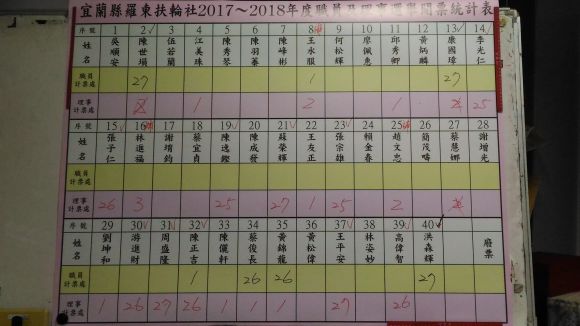 宜蘭縣羅東扶輪社2017～2018年度職員及理事選舉開票統計表
序號 1 2 3 4 5 6 7 8 9 10 11 12 13 14
姓名 吳順安 陳世場 伍若蘭 江美珠 陳秀琴 陳羽蓁 陳峰彬 王永服 何松輝 廖佩惠 邱秀卿 黃炳麟 康國瑋 李光仁
職員計票處 27 1 27
理事計票處 1 2 1 25
序號 15 16 17 18 19 20 21 22 23 24 25 26 27 28
姓名 張子仁 林進福 謝堉鈞 蔡宜貞 陳逸鏗 陳成發 蘇榮輝 王友正 張宗雄 賴金春 趙文忠 簡茂疇 蔡慧娜 謝增光
職員計票處
理事計票處 26 3 25 27 1 25 2
序號 29 30 31 32 33 34 35 36 37 38 39 40
姓名 劉坤和 游進財 周盛隆 陳正吉 陳儷軒 蔡俊長 黃錦龍 黃松偉 王平安 林姿妙 高偉智 洪森輝 廢票
職員計票處 1 26 26 27
理事計票處 1 26 27 26 1 1 1 27 26